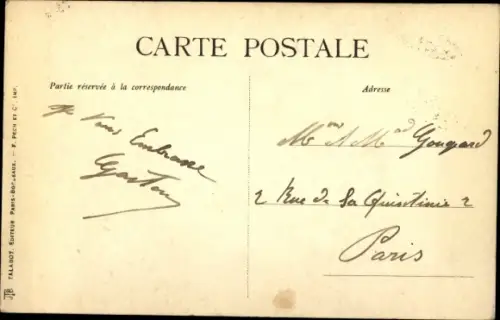 CARTE POSTALE
Partie réservée à la correspondance
Adresse
Je Vous Embrasse
Gaston
Mme A Mard Gougeard
2 Rue de La Quintinie 2
Paris
TALABOT. EDITEUR PARIS-BORDEAUX. — F. PECH ET Cie, IMP.